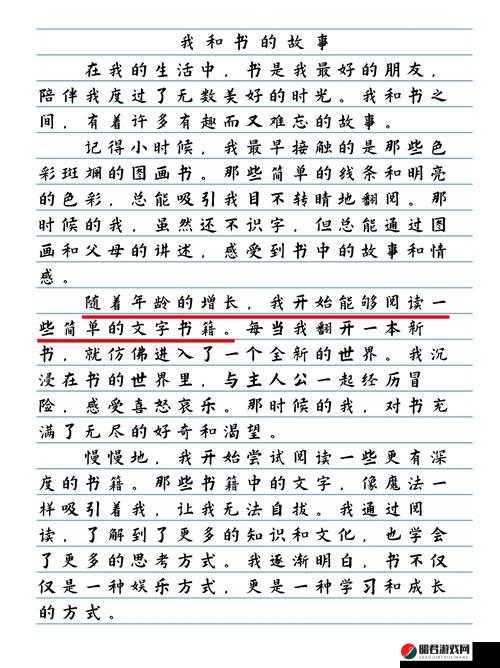 我和书的故事
在我的生活中，书是我最好的朋友，
陪伴我度过了无数美好的时光。我和书之
间，有着许多有趣而又难忘的故事。
记得小时候，我最早接触的是那些色
彩斑斓的图画书。那些简单的线条和明亮
的色彩，总能吸引我目不转睛地翻阅。那
时候的我，虽然还不识字，但总能通过图
画和父母的讲述，感受到书中的故事和情
感。
随着年龄的增长，我开始能够阅读一
些简单的文字书籍。每当我翻开一本新
书，就仿佛进入了一个全新的世界。我沉
浸在书的世界里，与主人公一起经历冒
险，感受喜怒哀乐。那时候的我，对书充
满了无尽的好奇和渴望。
慢慢地，我开始尝试阅读一些更有深
度的书籍。那些书籍中的文字，像魔法一
样吸引着我，让我无法自拔。我通过阅
读，了解到了更多的知识和文化，也学会
了更多的思考方式。我逐渐明白，书不仅
仅是一种娱乐方式，更是一种学习和成长
的方式。
鹏君游戏网